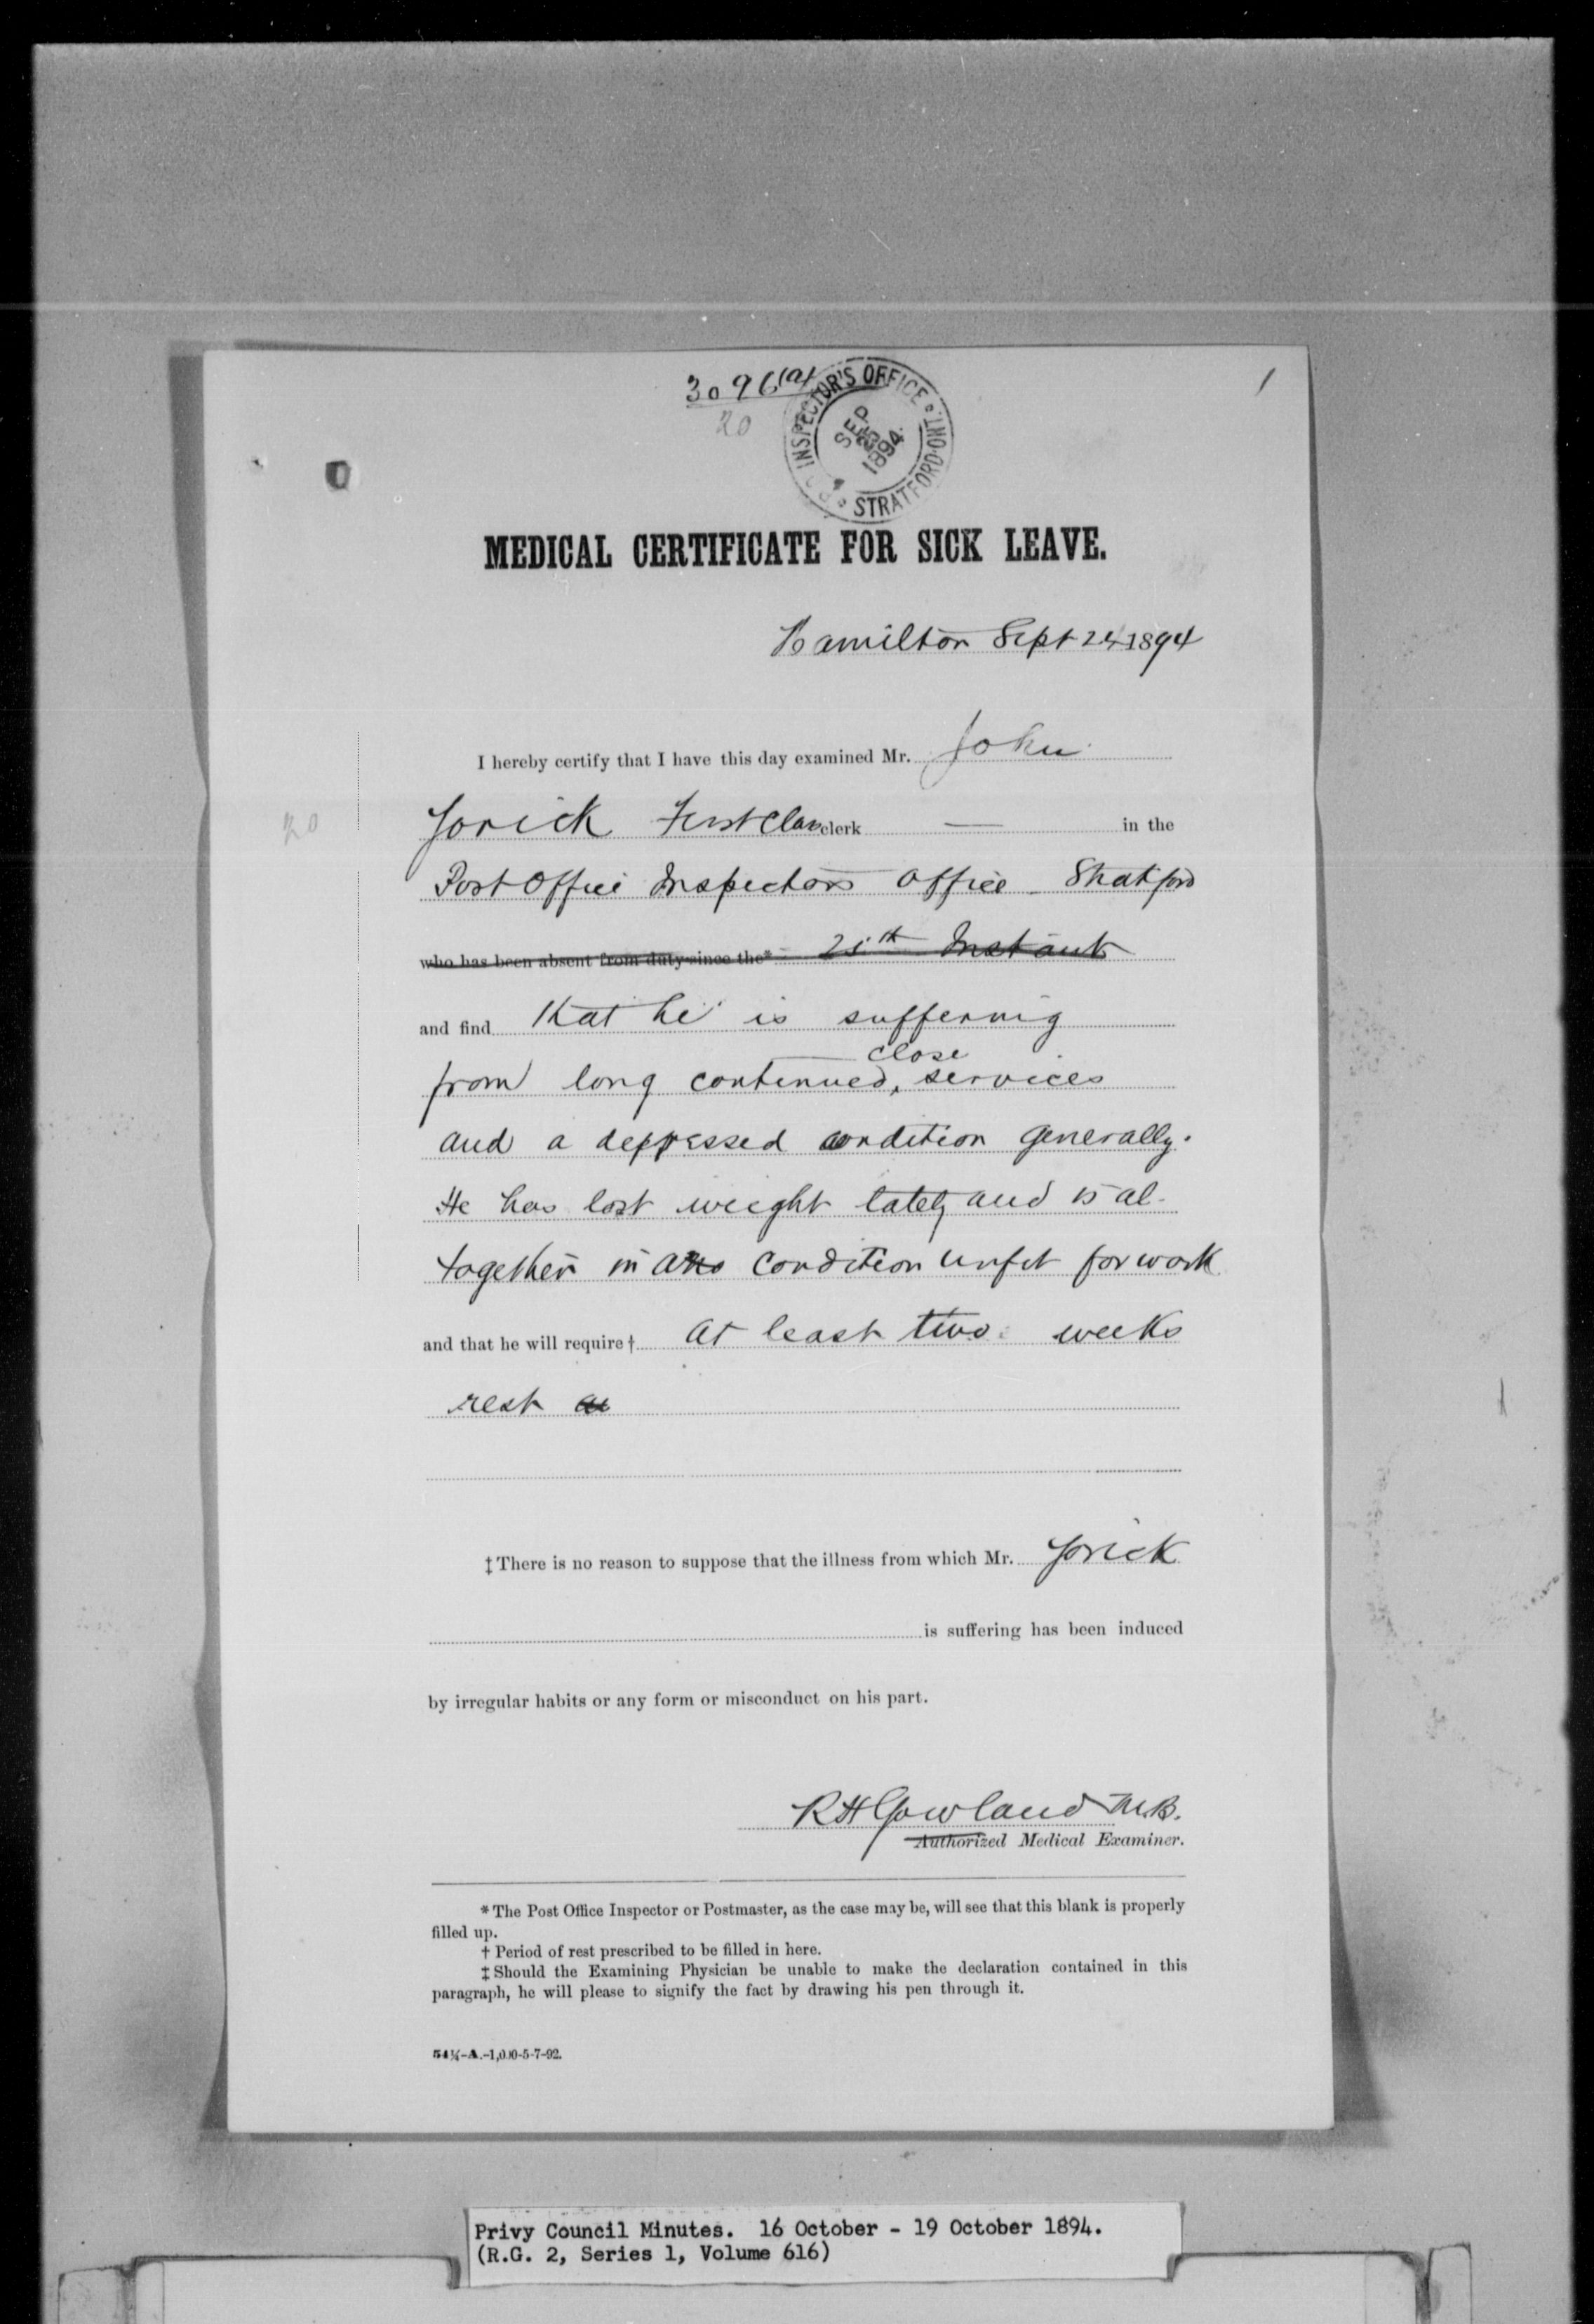 3096(a)
20
1
P.O. INSPECTOR'S OFFICE
SEP
25
1894.
STRATFORD. ONT.
MEDICAL CERTIFICATE FOR SICK LEAVE.
Hamilton Sept 24 1894
I hereby certify that I have this day examined Mr. John
Yorick First Class clerk — in the
20
Post Office Inspectors Office Stratford
who has been absent from duty since the* 25th Instant
and find that he is suffering
close
from long continued, services
and a depressed condition generally.
He has lost weight lately and is al-
together in a condition unfit for work
and that he will require † at least two weeks
rest
‡ There is no reason to suppose that the illness from which Mr. Yorick
is suffering has been induced
by irregular habits or any form or misconduct on his part.
RH Gowland M.B.
Authorized Medical Examiner.
* The Post Office Inspector or Postmaster, as the case may be, will see that this blank is properly
filled up.
† Period of rest prescribed to be filled in here.
‡ Should the Examining Physician be unable to make the declaration contained in this
paragraph, he will please to signify the fact by drawing his pen through it.
54¼–A.–1,000-5-7-92.
Privy Council Minutes. 16 October - 19 October 1894.
(R.G. 2, Series 1, Volume 616)